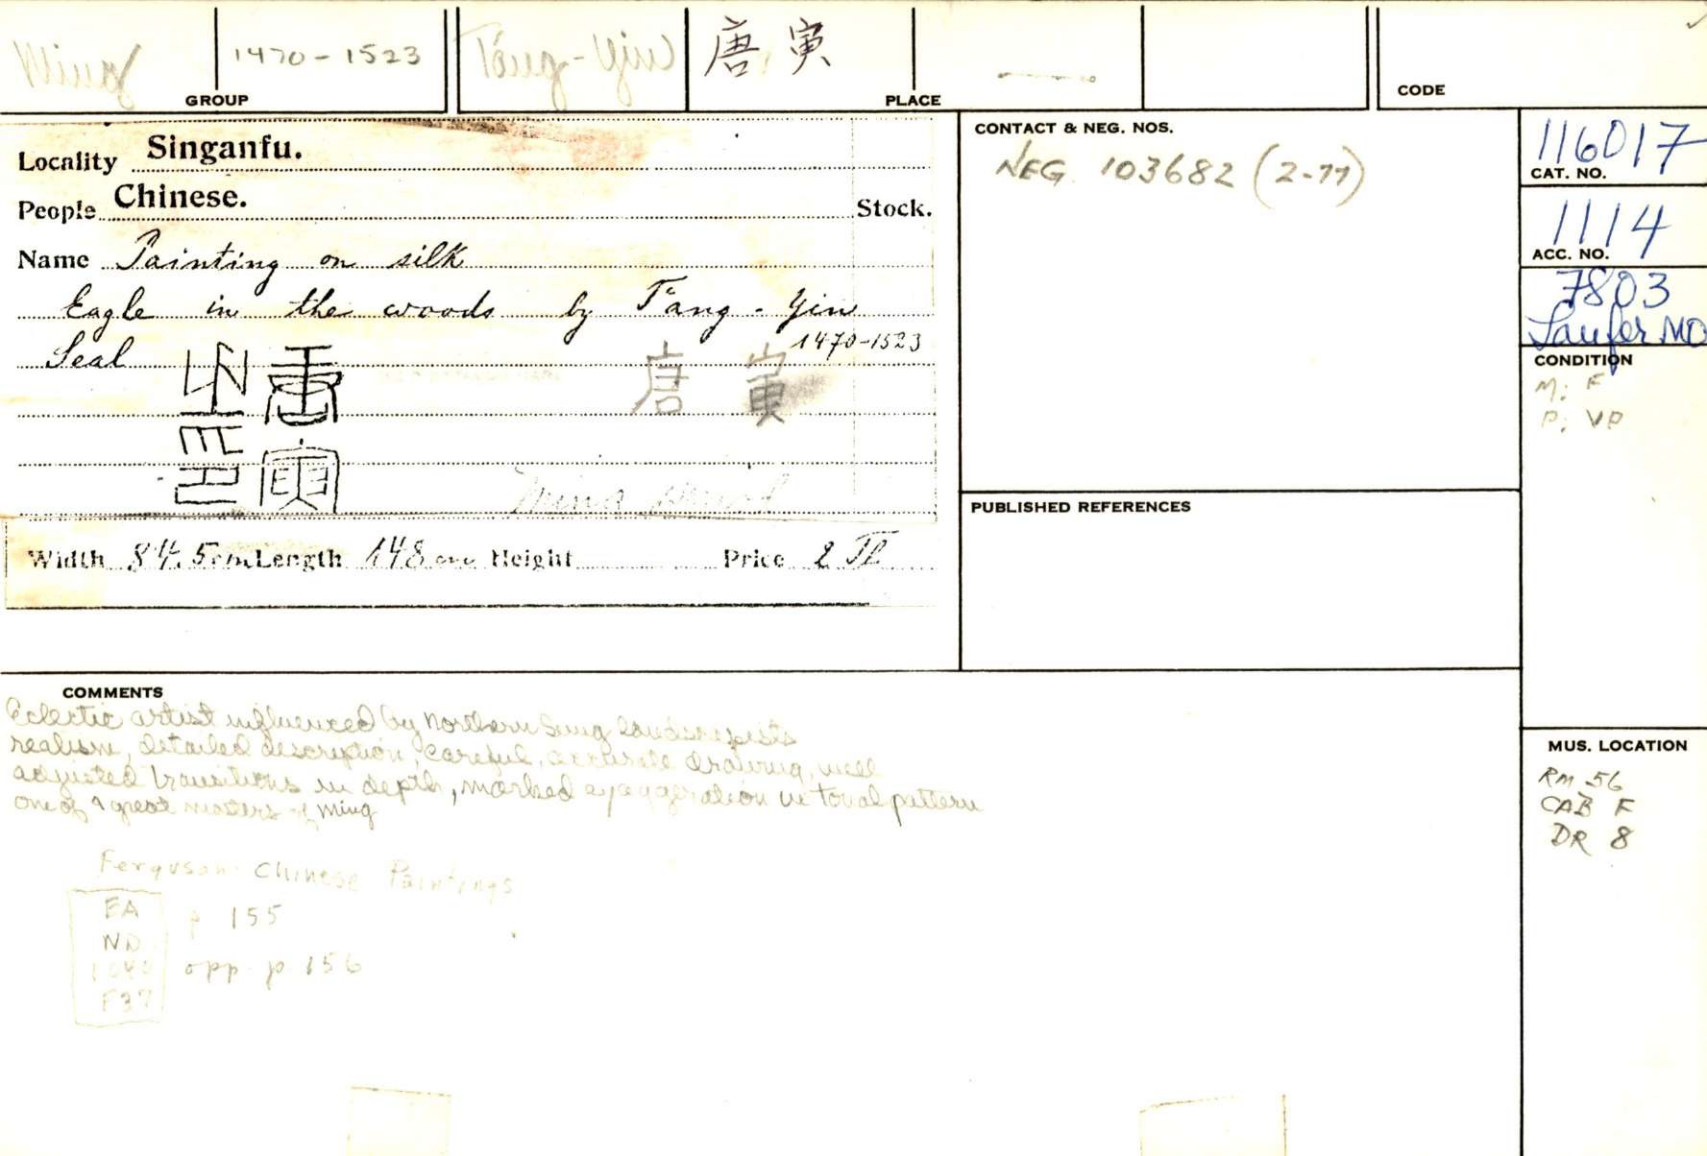 Ming 1470-1523 T'ang-Yin 唐寅
GROUP PLACE CODE
Locality Singanfu.
People Chinese. Stock.
Name Painting on silk
Eagle in the woods by T'ang-Yin
1470-1523
Seal 唐寅
唐寅
Ming
Width 84.5 cm Length 148 cm Height Price 2 Tl
CONTACT & NEG. NOS.
NEG. 103682 (2-77)
PUBLISHED REFERENCES
116017
CAT. NO.
1114
ACC. NO.
7803
Laufer MO
CONDITION
M: F
P: VP
MUS. LOCATION
RM 56
CAB F
DR 8
COMMENTS
Eclectic artist influenced by Northern Sung landscapists
realism, detailed description, careful, accurate drawing, well
adjusted transitions in depth, marked exaggeration in tonal pattern
one of 4 great masters of Ming
Ferguson Chinese Paintings
EA p 155
ND
opp. p. 156
F37